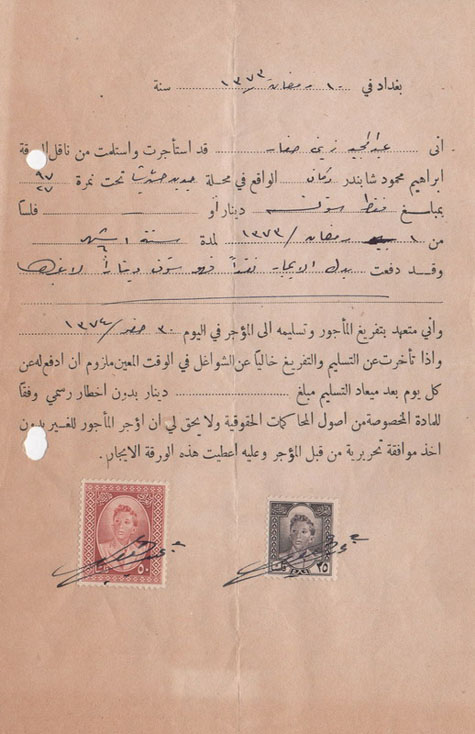 بغداد في ١٠ رمضان ١٣٧٣ سنة
اني عبدالمجيد زينل صفار قد استأجرت واستلمت من ناقل الورقة
ابراهيم محمود شابندر دكان الواقع في محلة جديد حسن باشا تحت نمرة ٩٧/٢٧
بمبلغ فقط ستون دينار أو فلساً
من ١ رمضان / ١٣٧٣ لمدة ستة ٦ اشهر
وقد دفعت بدل الايجار نقداً وهو ستون ديناراً لا غيرها
واني متعهد بتفريغ المأجور وتسليمه الى المؤجر في اليوم ٣٠ صفر / ١٣٧٤
واذا تأخرت عن التسليم والتفريغ خالياً عن الشواغل في الوقت المعين ملزوم ان ادفع له عن
كل يوم بعد ميعاد التسليم مبلغ دينار بدون اخطار رسمي وفقاً
للمادة المخصوصة من اصول المحاكمات الحقوقية ولا يحق لي ان اؤجر المأجور للغير بدون
اخذ موافقة تحريرية من قبل المؤجر وعليه اعطيت هذه الورقة الايجار.
٥٠
٢٥